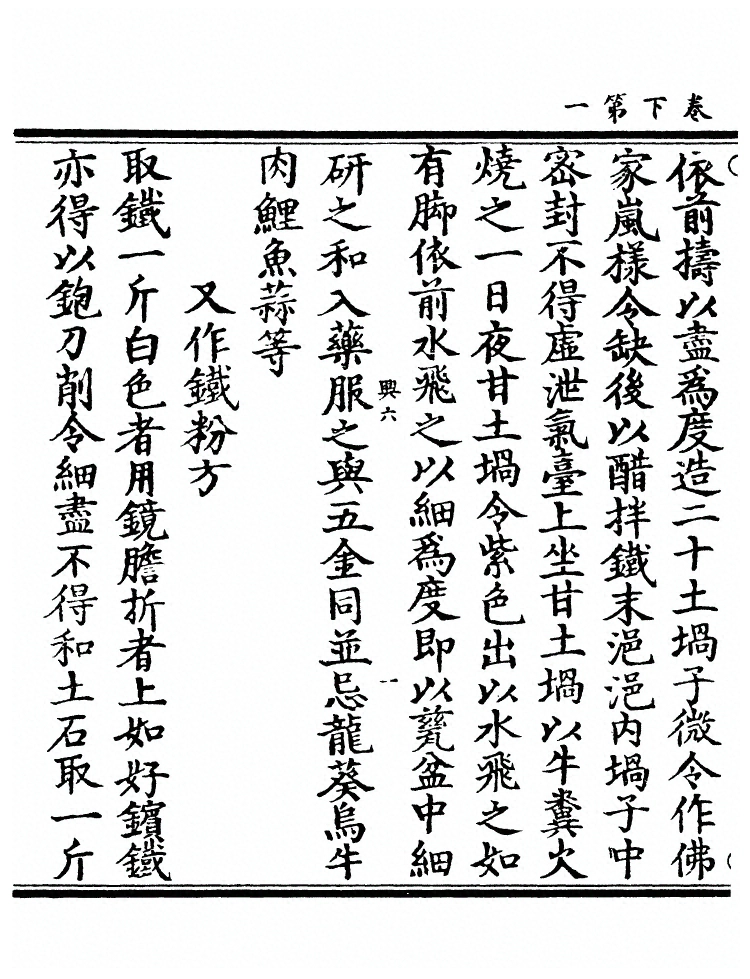 卷下第一
依前擣以盡爲度造二十土堝子微令作佛
家嵐樣令缺後以醋拌鐵末浥浥內堝子中
密封不得虛泄氣臺上坐甘土堝以牛糞火
燒之一日夜甘土堝令紫色出以水飛之如
有脚依前水飛之以細爲度即以甆盆中細
興六
一
研之和入藥服之與五金同並忌龍葵烏牛
肉鯉魚蒜等
又作鐵粉方
取鐵一斤白色者用鏡膽折者上如好鑌鐵
亦得以鉋刀削令細盡不得和土石取一斤